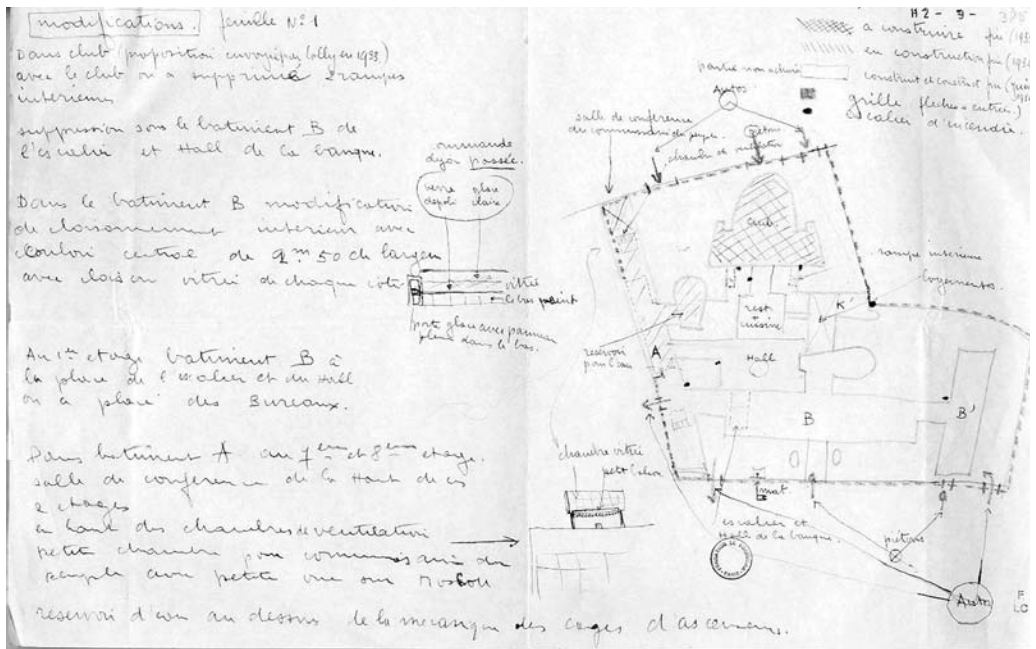 modifications. feuille N° 1
Dans club (proposition envoyée par Colly en 1933)
avec le club on a supprimé 2 rampes
interieures
suppression sous le batiment B de
l'escalier et Hall de la banque.
Dans le batiment B modification
de cloisonnement interieur avec
couloir central de 2m50 de largeur
avec cloison vitrée de chaque coté
Au 1er etage batiment B à
la place de l'escalier et du Hall
on a placé des Bureaux.
Dans batiment A au 7eme et 8eme etage.
salle de conference de la Haut de ces
2 etages
en haut des chambres de ventilation
petite chambre pour commissaire du
peuple avec petite vue sur Moscou
reservoir d'eau au dessus de la mecanique des cages d'ascenseurs.
commande
deja passée.
verre depoli
glace claire
vitre
le bas peint
porte glace avec panneau
pleine dans le bas.
chambre vitrée
petit balcon
H2-9-
a construire
en construction
construit
grille fleches = entrées
escalier d'incendie.
Autos
salle de conference
du commissaire du peuple.
pietons
chambre de ventilation
club.
rampe interieure
logements.
rest.
cuisine
K'
Hall
A
reservoir
pour l'eau
B
B'
mat
escalier et
Hall de la banque.
pietons
Autos
F
LC